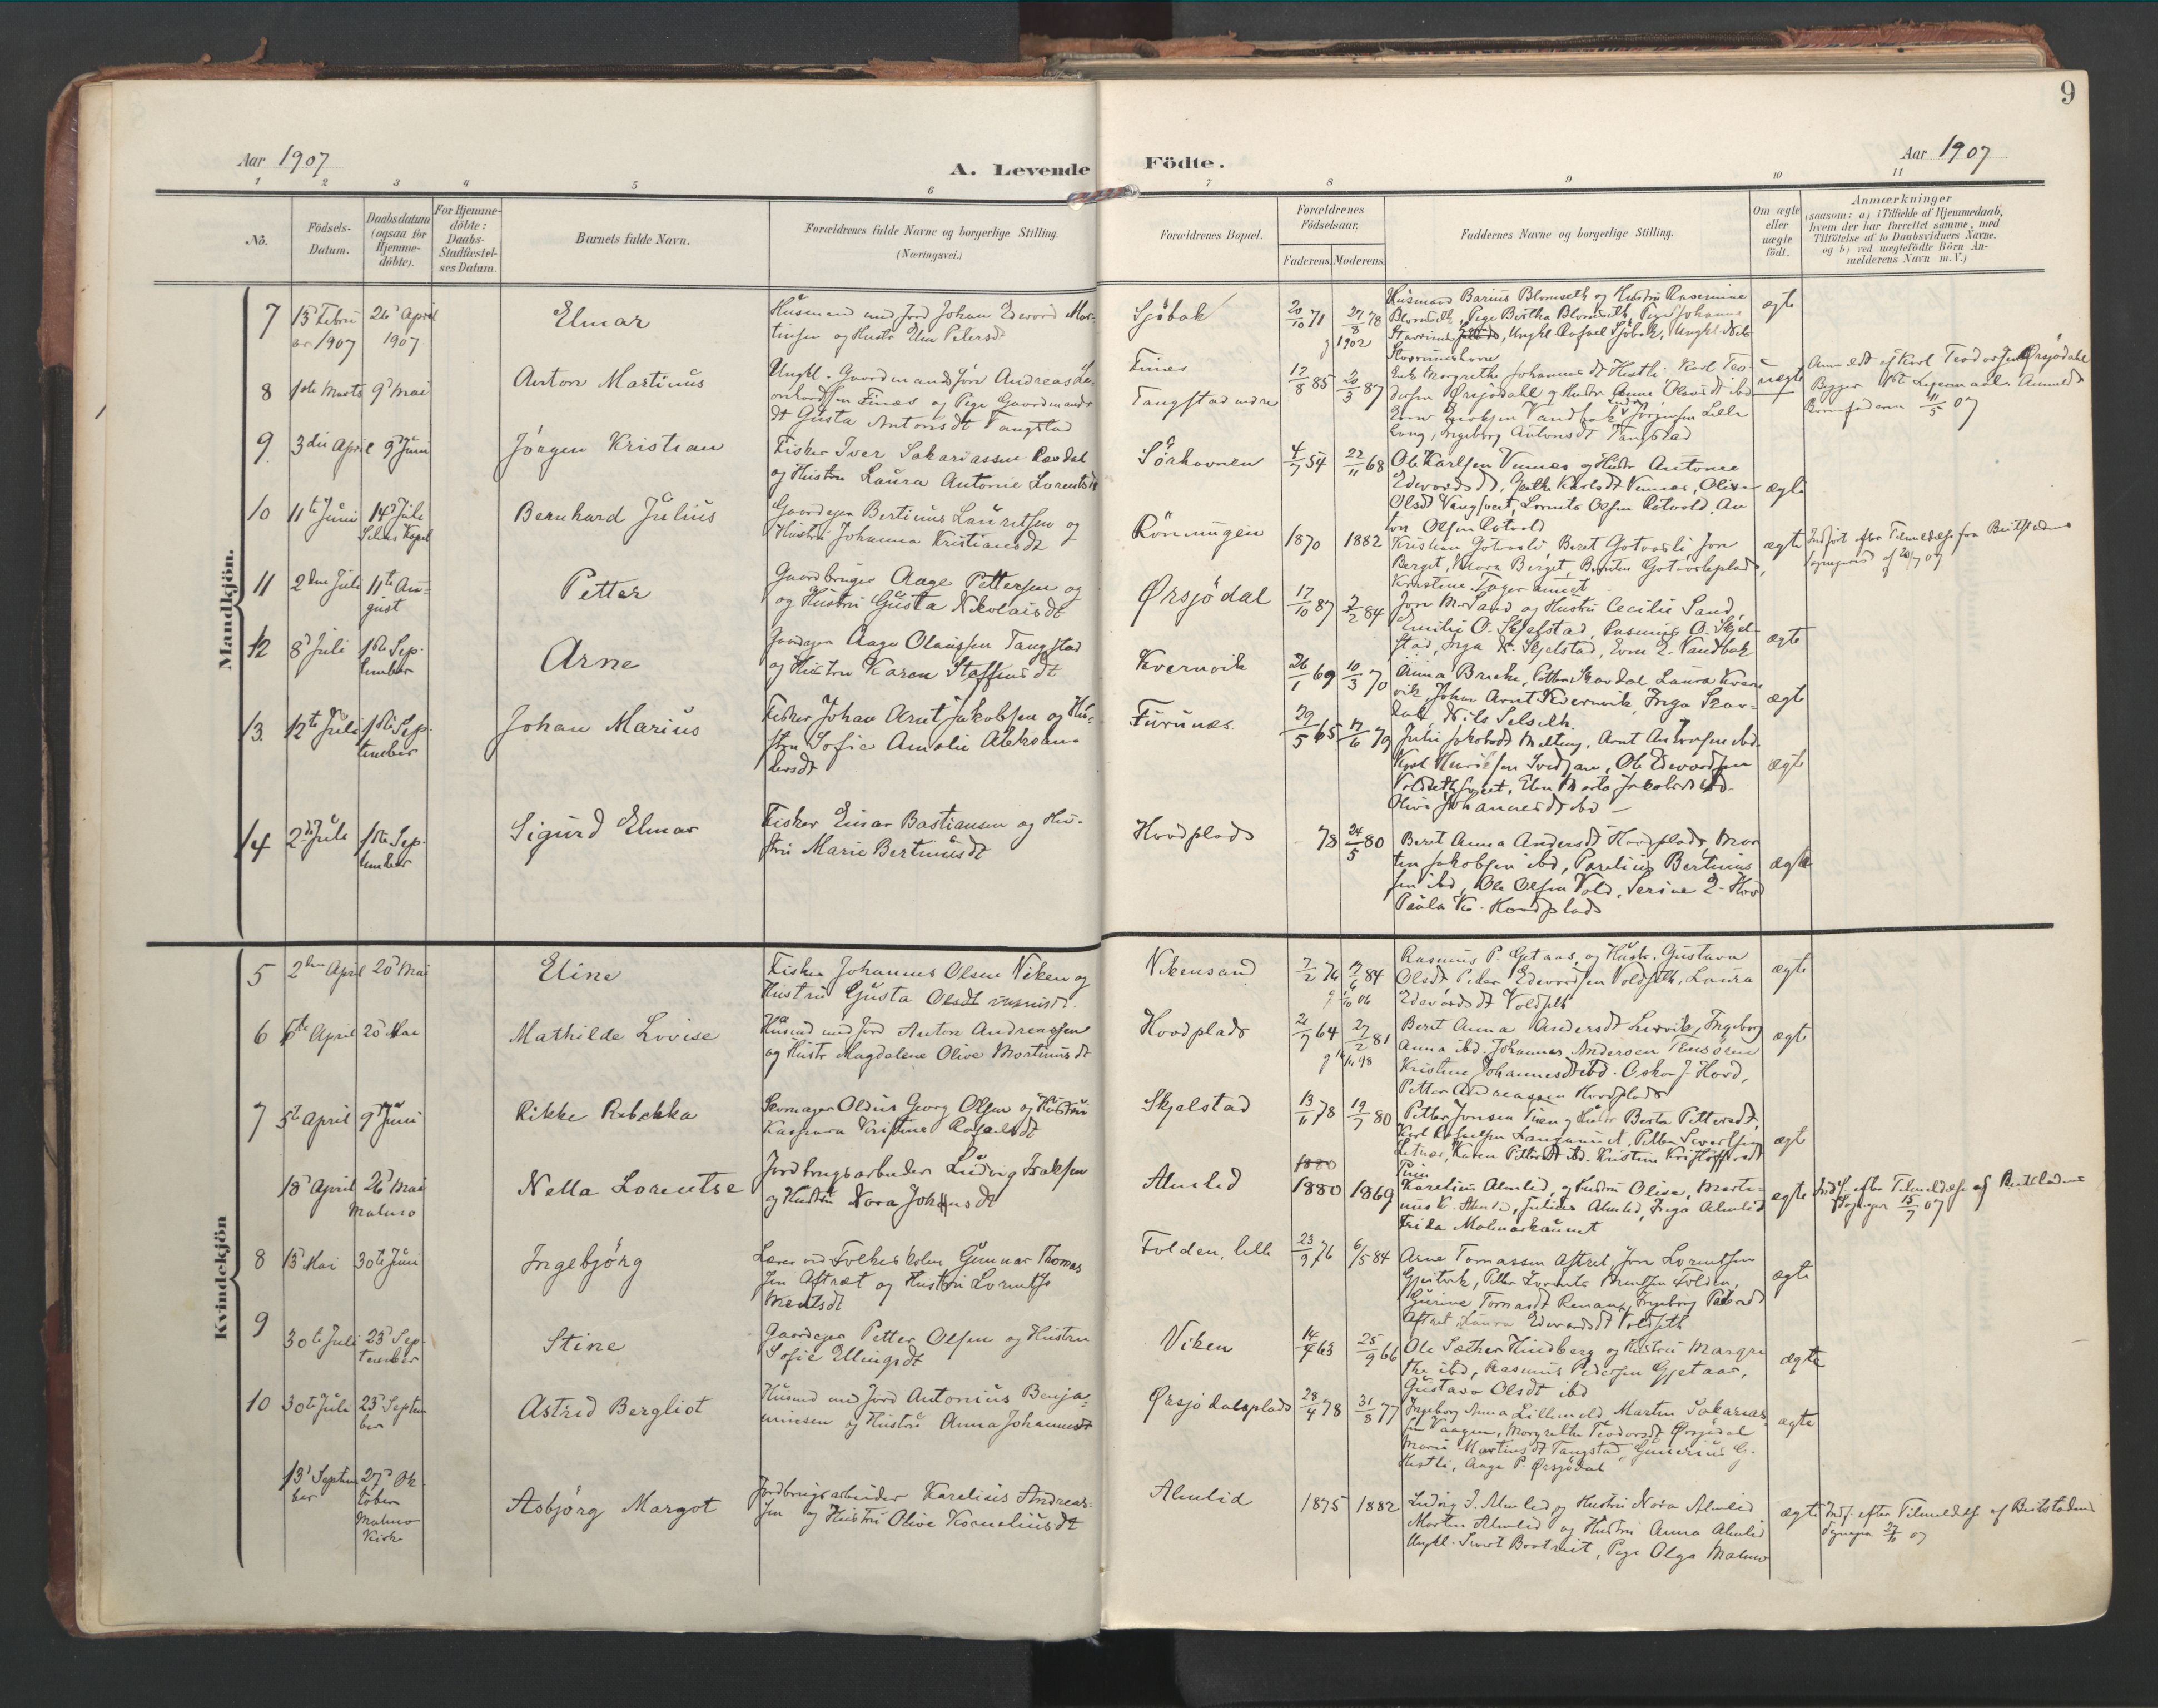 9
Aar 1907
A. Levende
Födte.
Aar 1907
1 2 3 4 5 6 7 8 9 10 11
No.
Födsels-
Datum.
Daabsdatum
(ogsaa for
Hjemme-
döbte).
For Hjemme-
döbte:
Daabs-
Stadfæstel-
ses Datum.
Barnets fulde Navn.
Forældrenes fulde Navne og borgerlige Stilling.
(Næringsvei.)
Forældrenes Bopæl.
Forældrenes
Födselsaar.
Faderens. Moderens.
Faddernes Navne og borgerlige Stilling.
Om ægte
eller
uægte
födt.
Anmærkninger
(saasom: a) i Tilfælde af Hjemmedaab,
hvem der har forrettet samme, med
Tilföielse af to Daabsvidners Navne.
og b) ved uægtefödte Börn An-
melderens Navn m. V.)
Mandkjön.
7 15 Febru
ar 1907
26 April
1907
Elmar
Husmand med Jord Johan Edvard Mar-
tinsen og Hustr Elen Petersdt
Sjöbak
20/10 71
27/8 78
g 1902
Husmand Barius Blomseth og Hustru Rasmine
Blomseth, Pige Bertha Blomseth, Pige Johanna
ægte
8 1ste Marts 9 Mai
Anton Martinus
Ungkl. Gaardmandssøn Andreas Le-
onhardsen Finæs og Pige Gaardmands
dt Gusta Antonsdt Tangstad
Finæs
Tangstad nedre
17/8 85
20/3 87
Lang, Ingeborg Antonsdt Tangstad
uægte
Anmeldt af Karl Teodorsen Ørsjödahl
Begges 1st Leiermaal. Anmeldt
Barnefaderen 11/5 07
9 3die April 9 Juni
Jörgen Kristian
Fisker Iver Sakariassen Ravdal
og Hustru Laura Antonie Lorentsdt
Sörhavnen
4/7 54
22/11 68
Ole Karlsen Vennes og Hustr Antonie
Edvardsdt, Karlsdt Vennes, Olise
Olsdt Vangsvet, Lornts Olsen Rotvold, An
ton Olsen Rotvold
ægte
10 11te Juni 14 Juli
Selnes Kapel
Bernhard Julius
Gaardejer Bertinus Lauritsen og
Hustru Johanna Kristiansdt
Rönningen
1870
1882
Kristian Gotvasli, Beret Gotvasli, Jon
Berget, Berget, Gotvasliplads,
Kristine
ægte
Indfört efter Tilmeldelse fra Beitstadens
Sogneprest af 20/7 07
11 2den Juli 11te Au-
gust
Petter
Gaardbruger Aage Pettersen og
og Hustru Gusta Nikolaisdt
Ørsjödal
17/10 87
7/2 84
Jon M. Sand og Hustru Cecilie Sand,
Emilie O. Skjelstad, Rasmus O. Skjel-
stad, Inga K. Skjelstad, Even E. Vandbak
ægte
12 8 Juli 1ste Sep-
tember
Arne
Gaardejer Aage Olaussen Tangstad
og Hustru Karen Steffensdt
Kvernvik
26/1 69
10/3 70
Anna Brecke, Petter Skavdal Laura Kvern
vik Johan Arnt Kvernvik, Inga Skav-
dal, Nils Selseth
ægte
13 12te Juli 1ste Sep-
tember
Johan Marius
Fisker Johan Arnt Jakobsen og Hu-
stru Sofie Amalie Aleksan-
dersdt
Furunæs.
29/5 65
17/6 79
Julie Jakobsdt Melting, Arnt Andersen ibd.
Karl Svedjan, Ole Edvardsen
Elen Marta Jakobsdt ibd.
Olive Johannesdt ibd
ægte
14 2 Juli 1ste Sep-
tember
Sigurd Elmar
Fisker Einar Bastiansen og Hu-
stru Marie Bertinusdt
Hovdplads
78
24/5 80
Beret Anna Andersdt Hovdplads, Mar
tin Jakobsen ibd, Parelius Bertinus
sen ibd, Ole Olsen Vold, Serine E. Hovd
Paula K. Hovdplads
ægte
Kvindekjön
5 2den April 20 Mai
Eline
Fisker Johannes Olsen Viken og
Hustru Gusta Olsdt
Vikensand
7/2 76
17/6 84
g 1/10 06
Rasmus P. Gjetaas og Hustr. Gustava
Olsdt, Peder Edvardsen Voldseth, Laura
Edevardsdt Voldseth
ægte
6 5te April 20 Mai
Mathilde Lovise
Husmd med Jord Anton Andreassen
og Hustr Magdalene Olive Martinusdt
Hovdplads
21/7 64
27/2 81
Beret Anna Andersdt Lervik, Ingeborg
Anna ibd. Johannes Andersen
Kristine Johannesdt ibd. Oskar J. Hovd,
Petter Andreassen Hovdplads
ægte
7 5te April 9 Juni
Rikke Rebekka
Skomager Oldius Georg Olsen og Hustru
Kaspara Kristine Rafaelsdt
Skjelstad
13/11 78
19/7 80
Petter Jonsen Tiren og Hustr Berta Pettersdt,
Karl Rafaelsen Langaunet, Petter Sivertsen
Letnæs, Karen Pettersdt ibd. Kristine Kristoffersdt
ægte
18 April 26 Mai
Malmo
Nella Lorentse
Jordbrugsarbeider Ludvig Isaksen
og Hustru Nora Johansdt
Almlid
1880
1880
1869
Karelius Almlid, og Hustru Olise, Marti-
nus K. Almlid, Julius Almlid, Inga Almlid
Frida Malmarkaunet
ægte
Indf. efter Tilmeldelse af Beitstadens
Sognepr 15/7 07
8 15 Mai 30te Juni
Ingebjörg
Lærer ved Folkeskolen Gunnar Thomas
sen Aftræt og Hustru Lorentse
Mentsdt
Folden, lille
23/9 76
6/5 84
Arne Tomassen Aftret, Jon Lorentsen
Gjeitvik, Petter Lorents Mentsen Folden,
Gurine Tomasdt Ingeborg
Aftret, Laura Edvardsdt Voldseth
ægte
9 30te Juli 23 Sep-
tember
Stine
Gaardejer Petter Olsen og Hustru
Sofie Ellingsdt
Viken
14/4 63
25/9 66
Ole Sæther Hindberg og Hustru Margre
the ibd, Rasmus Pedersen Gjetaas,
Gustava Olsdt ibd
ægte
10 30te Juli 23 Septem
ber
Astrid Bergliot
Husmd med Jord Antonius Benja-
minsen og Hustru Anna Johannesdt
Ørsjödalsplads
28/4 78
31/8 77
Ingeborg Anna Lillemold, Martin Sakarias
sen Vaagen, Margrethe Teodorsdt Ørsjödal
Marie Martinusdt Tangstad, Gunerius G.
Hestli, Aage P. Ørsjödal
ægte
13 Septem
ber
27 Ok-
tober
Malmo
Kirke
Asbjörg Margot
Jordbrugsarbeider Karelius Andreas-
sen og Hustru Olive Korneliusdt
Almlid
1875
1882
Ludvig I. Almlid og Hustru Nora Almlid
Morten Almlid og Hustru Anna Almlid
Ungkl. Sivert Pige Olga Malmo
ægte
Indf. efter Tilmeldelse af Beitstadens
Sognepr 27/10 07